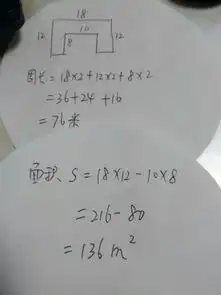 18
10
12
8
12
周长=18×2+12×2+8×2
=36+24+16
=76米
面积、S=18×12-10×8
=216-80
=136m²